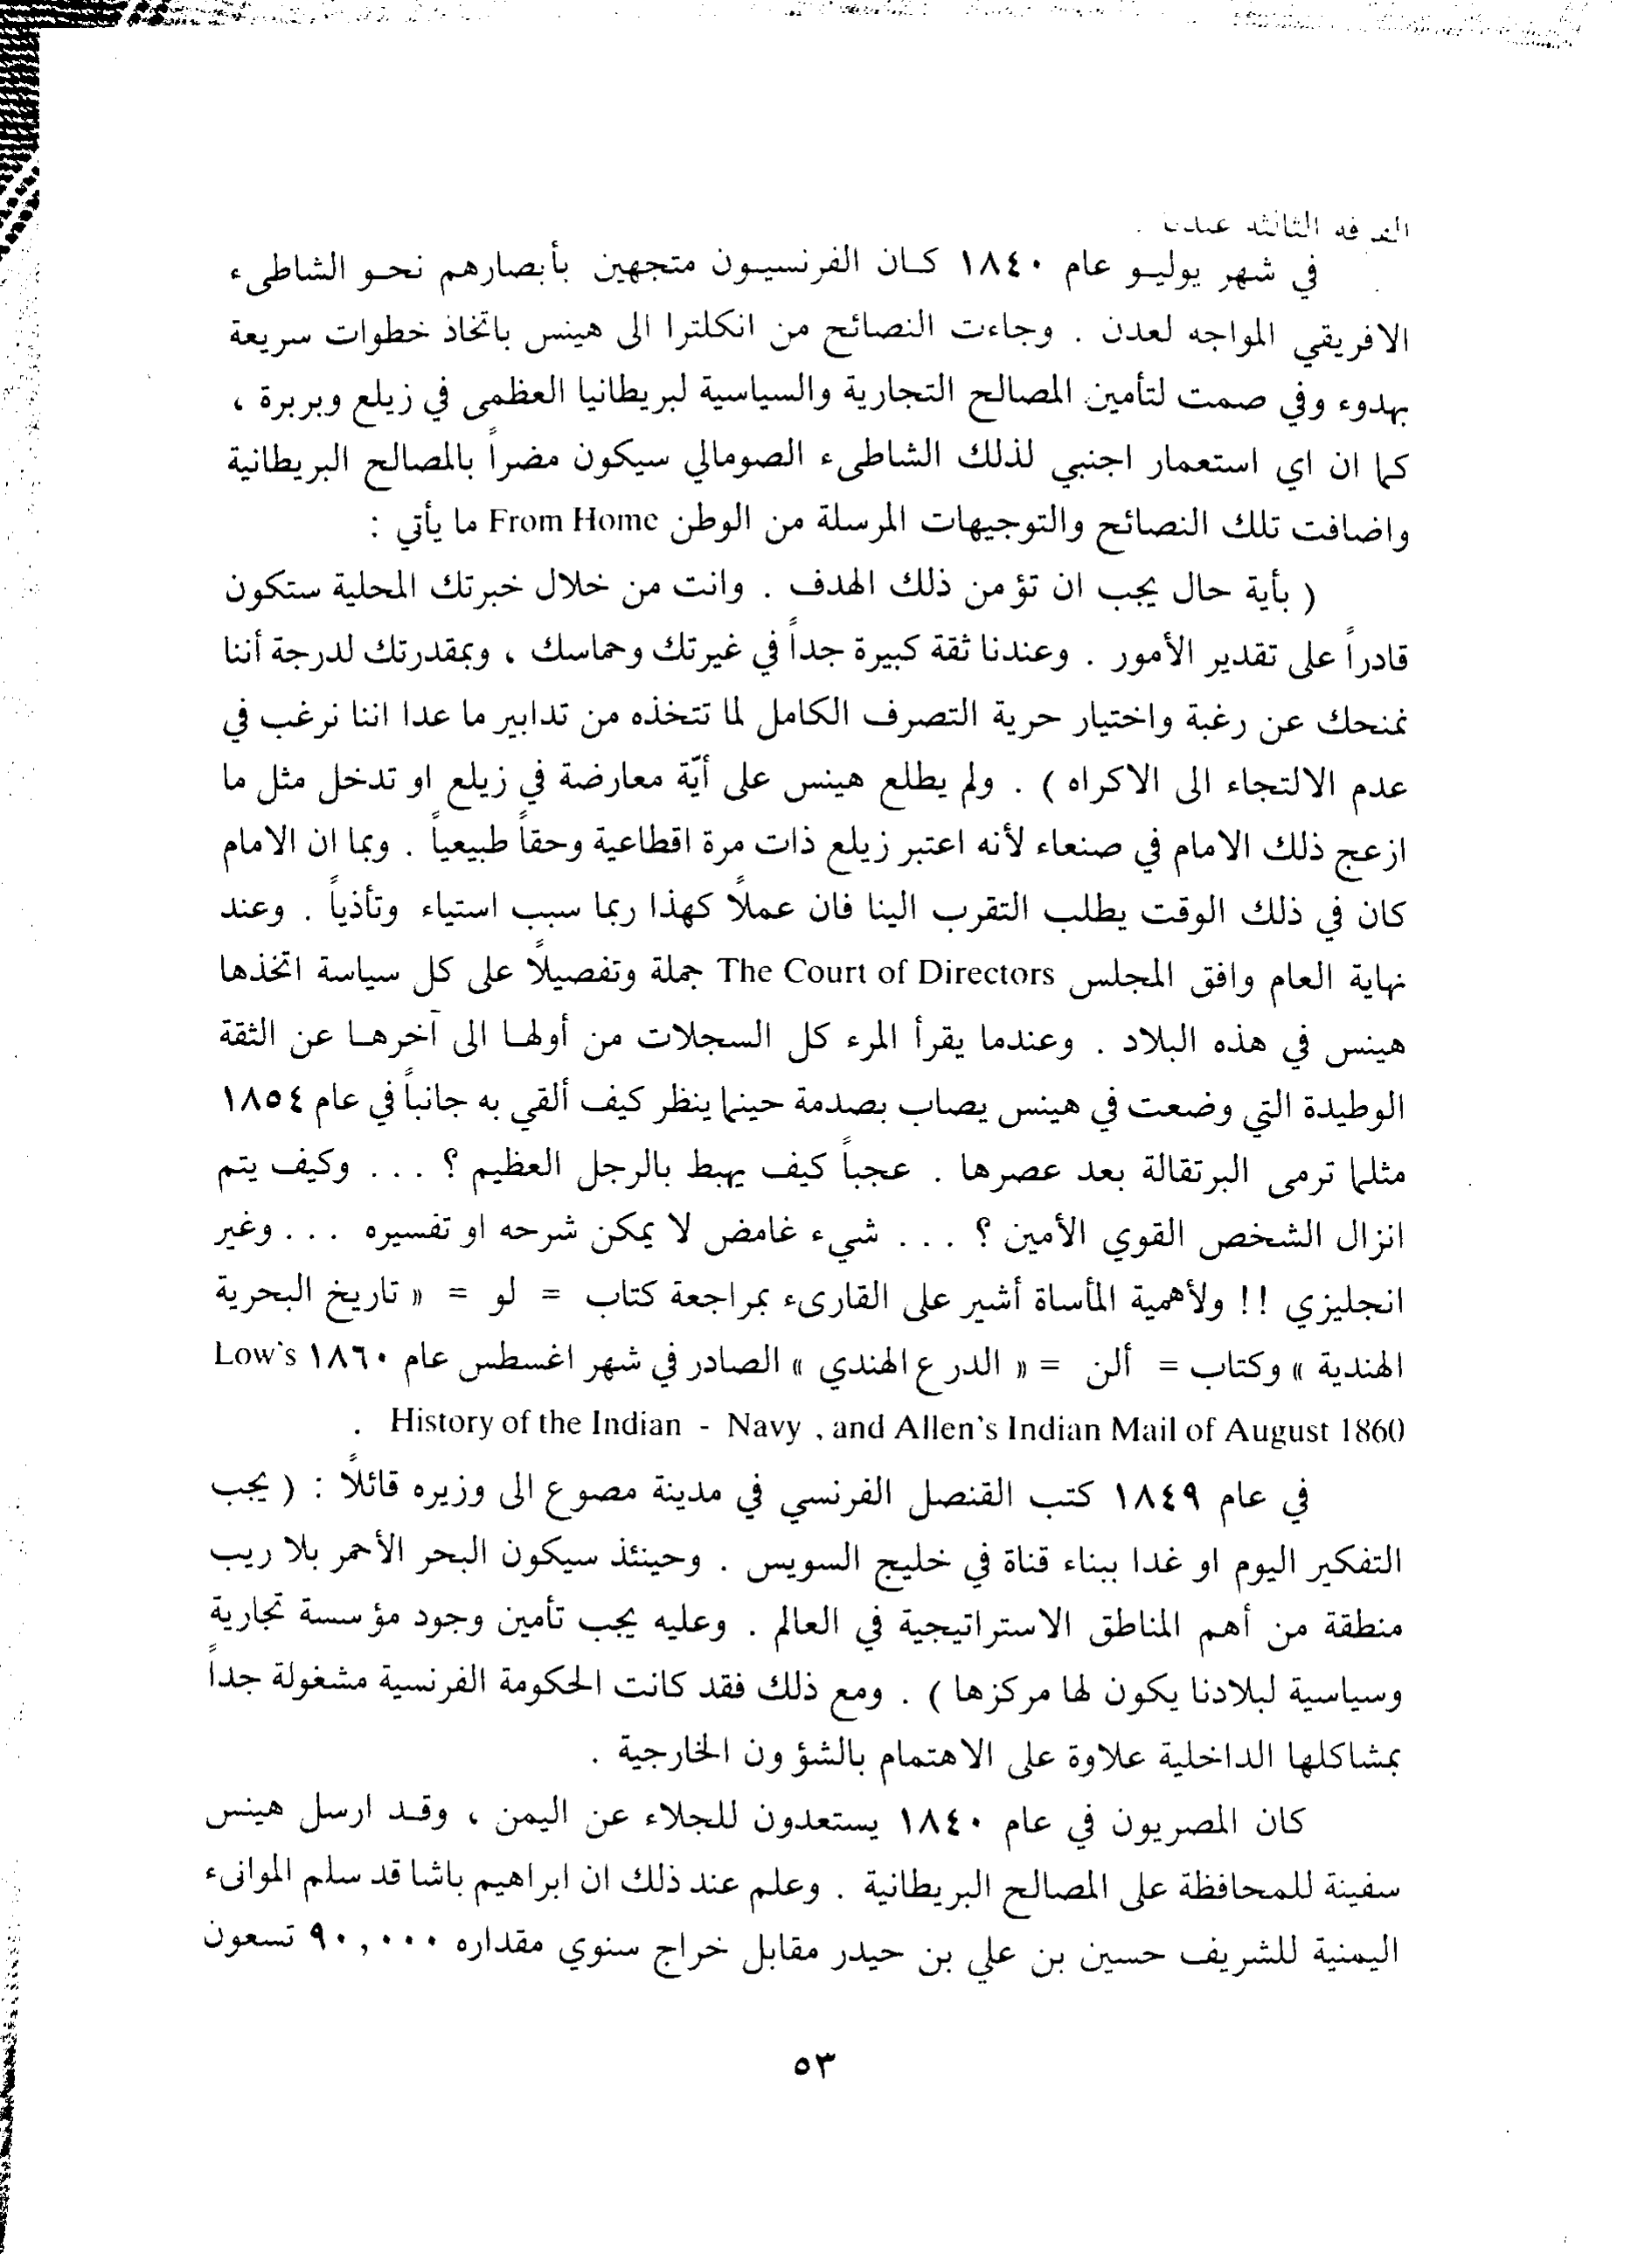 الثالثه
في شهر يوليو عام ١٨٤٠ كان الفرنسيون متجهين بأبصارهم نحو الشاطىء
الافريقي المواجه لعدن . وجاءت النصائح من انكلترا الى هينس باتخاذ خطوات سريعة
بهدوء وفي صمت لتأمين المصالح التجارية والسياسية لبريطانيا العظمى في زيلع وبربرة ،
كما ان اي استعمار اجنبي لذلك الشاطىء الصومالي سيكون مضراً بالمصالح البريطانية
واضافت تلك النصائح والتوجيهات المرسلة من الوطن From Home ما يأتي :
( بأية حال يجب ان تؤمن ذلك الهدف . وانت من خلال خبرتك المحلية ستكون
قادراً على تقدير الأمور . وعندنا ثقة كبيرة جداً في غيرتك وحماسك ، وبمقدرتك لدرجة أننا
نمنحك عن رغبة واختيار حرية التصرف الكامل لما تتخذه من تدابير ما عدا اننا نرغب في
عدم الالتجاء الى الاكراه ) . ولم يطلع هينس على أيّة معارضة في زيلع او تدخل مثل ما
ازعج ذلك الامام في صنعاء لأنه اعتبر زيلع ذات مرة اقطاعية وحقاً طبيعياً . وبما ان الامام
كان في ذلك الوقت يطلب التقرب الينا فان عملاً كهذا ربما سبب استياء وتأذياً . وعند
نهاية العام وافق المجلس The Court of Directors جملة وتفصيلاً على كل سياسة اتخذها
هينس في هذه البلاد . وعندما يقرأ المرء كل السجلات من أولها الى آخرها عن الثقة
الوطيدة التي وضعت في هينس يصاب بصدمة حينما ينظر كيف ألقي به جانباً في عام ١٨٥٤
مثلما ترمى البرتقالة بعد عصرها . عجباً كيف يهبط بالرجل العظيم ؟ . . . وكيف يتم
انزال الشخص القوي الأمين ؟ . . . شيء غامض لا يمكن شرحه او تفسيره . . . وغير
انجليزي !! ولأهمية المأساة أشير على القارىء بمراجعة كتاب = لو = « تاريخ البحرية
الهندية » وكتاب = ألن = « الدرع الهندي » الصادر في شهر اغسطس عام ١٨٦٠ Low's
History of the Indian - Navy , and Allen's Indian Mail of August 1860 .
في عام ١٨٤٩ كتب القنصل الفرنسي في مدينة مصوع الى وزيره قائلاً : ( يجب
التفكير اليوم او غدا ببناء قناة في خليج السويس . وحينئذ سيكون البحر الأحمر بلا ريب
منطقة من أهم المناطق الاستراتيجية في العالم . وعليه يجب تأمين وجود مؤسسة تجارية
وسياسية لبلادنا يكون لها مركزها ) . ومع ذلك فقد كانت الحكومة الفرنسية مشغولة جداً
بمشاكلها الداخلية علاوة على الاهتمام بالشؤون الخارجية .
كان المصريون في عام ١٨٤٠ يستعدون للجلاء عن اليمن ، وقد ارسل هينس
سفينة للمحافظة على المصالح البريطانية . وعلم عند ذلك ان ابراهيم باشا قد سلم الموانىء
اليمنية للشريف حسين بن علي بن حيدر مقابل خراج سنوي مقداره ٩٠,٠٠٠ تسعون
٥٣